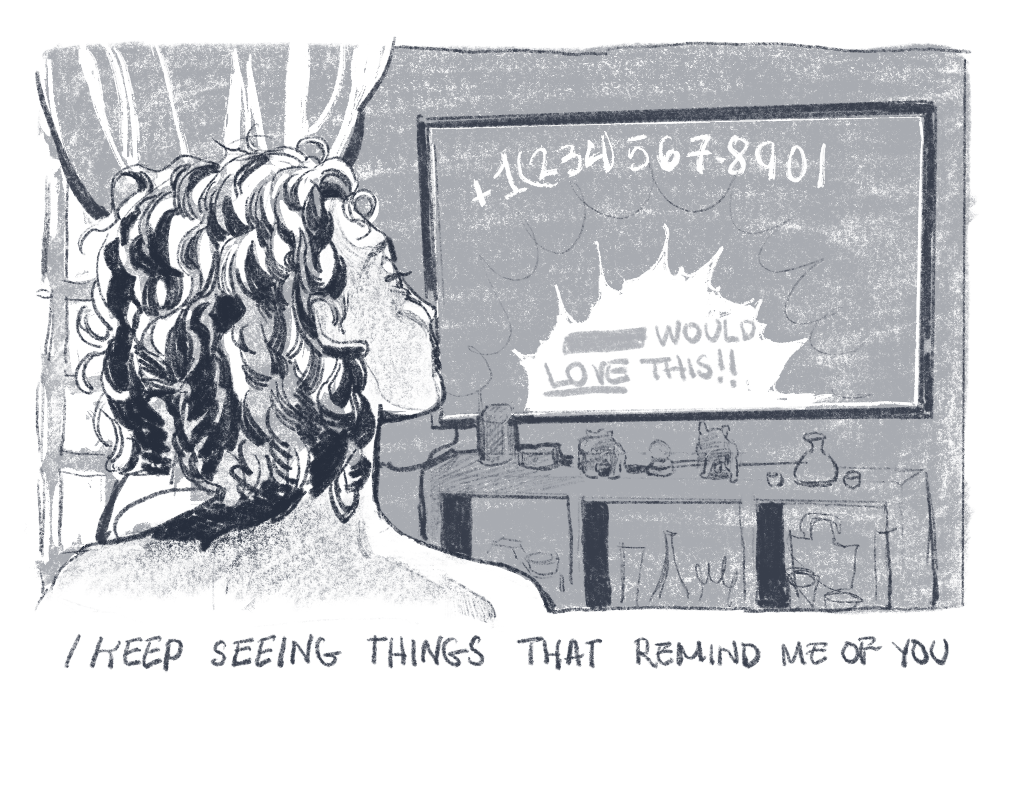 +1(234) 567-8901
WOULD
LOVE THIS!!
I KEEP SEEING THINGS THAT REMIND ME OF YOU